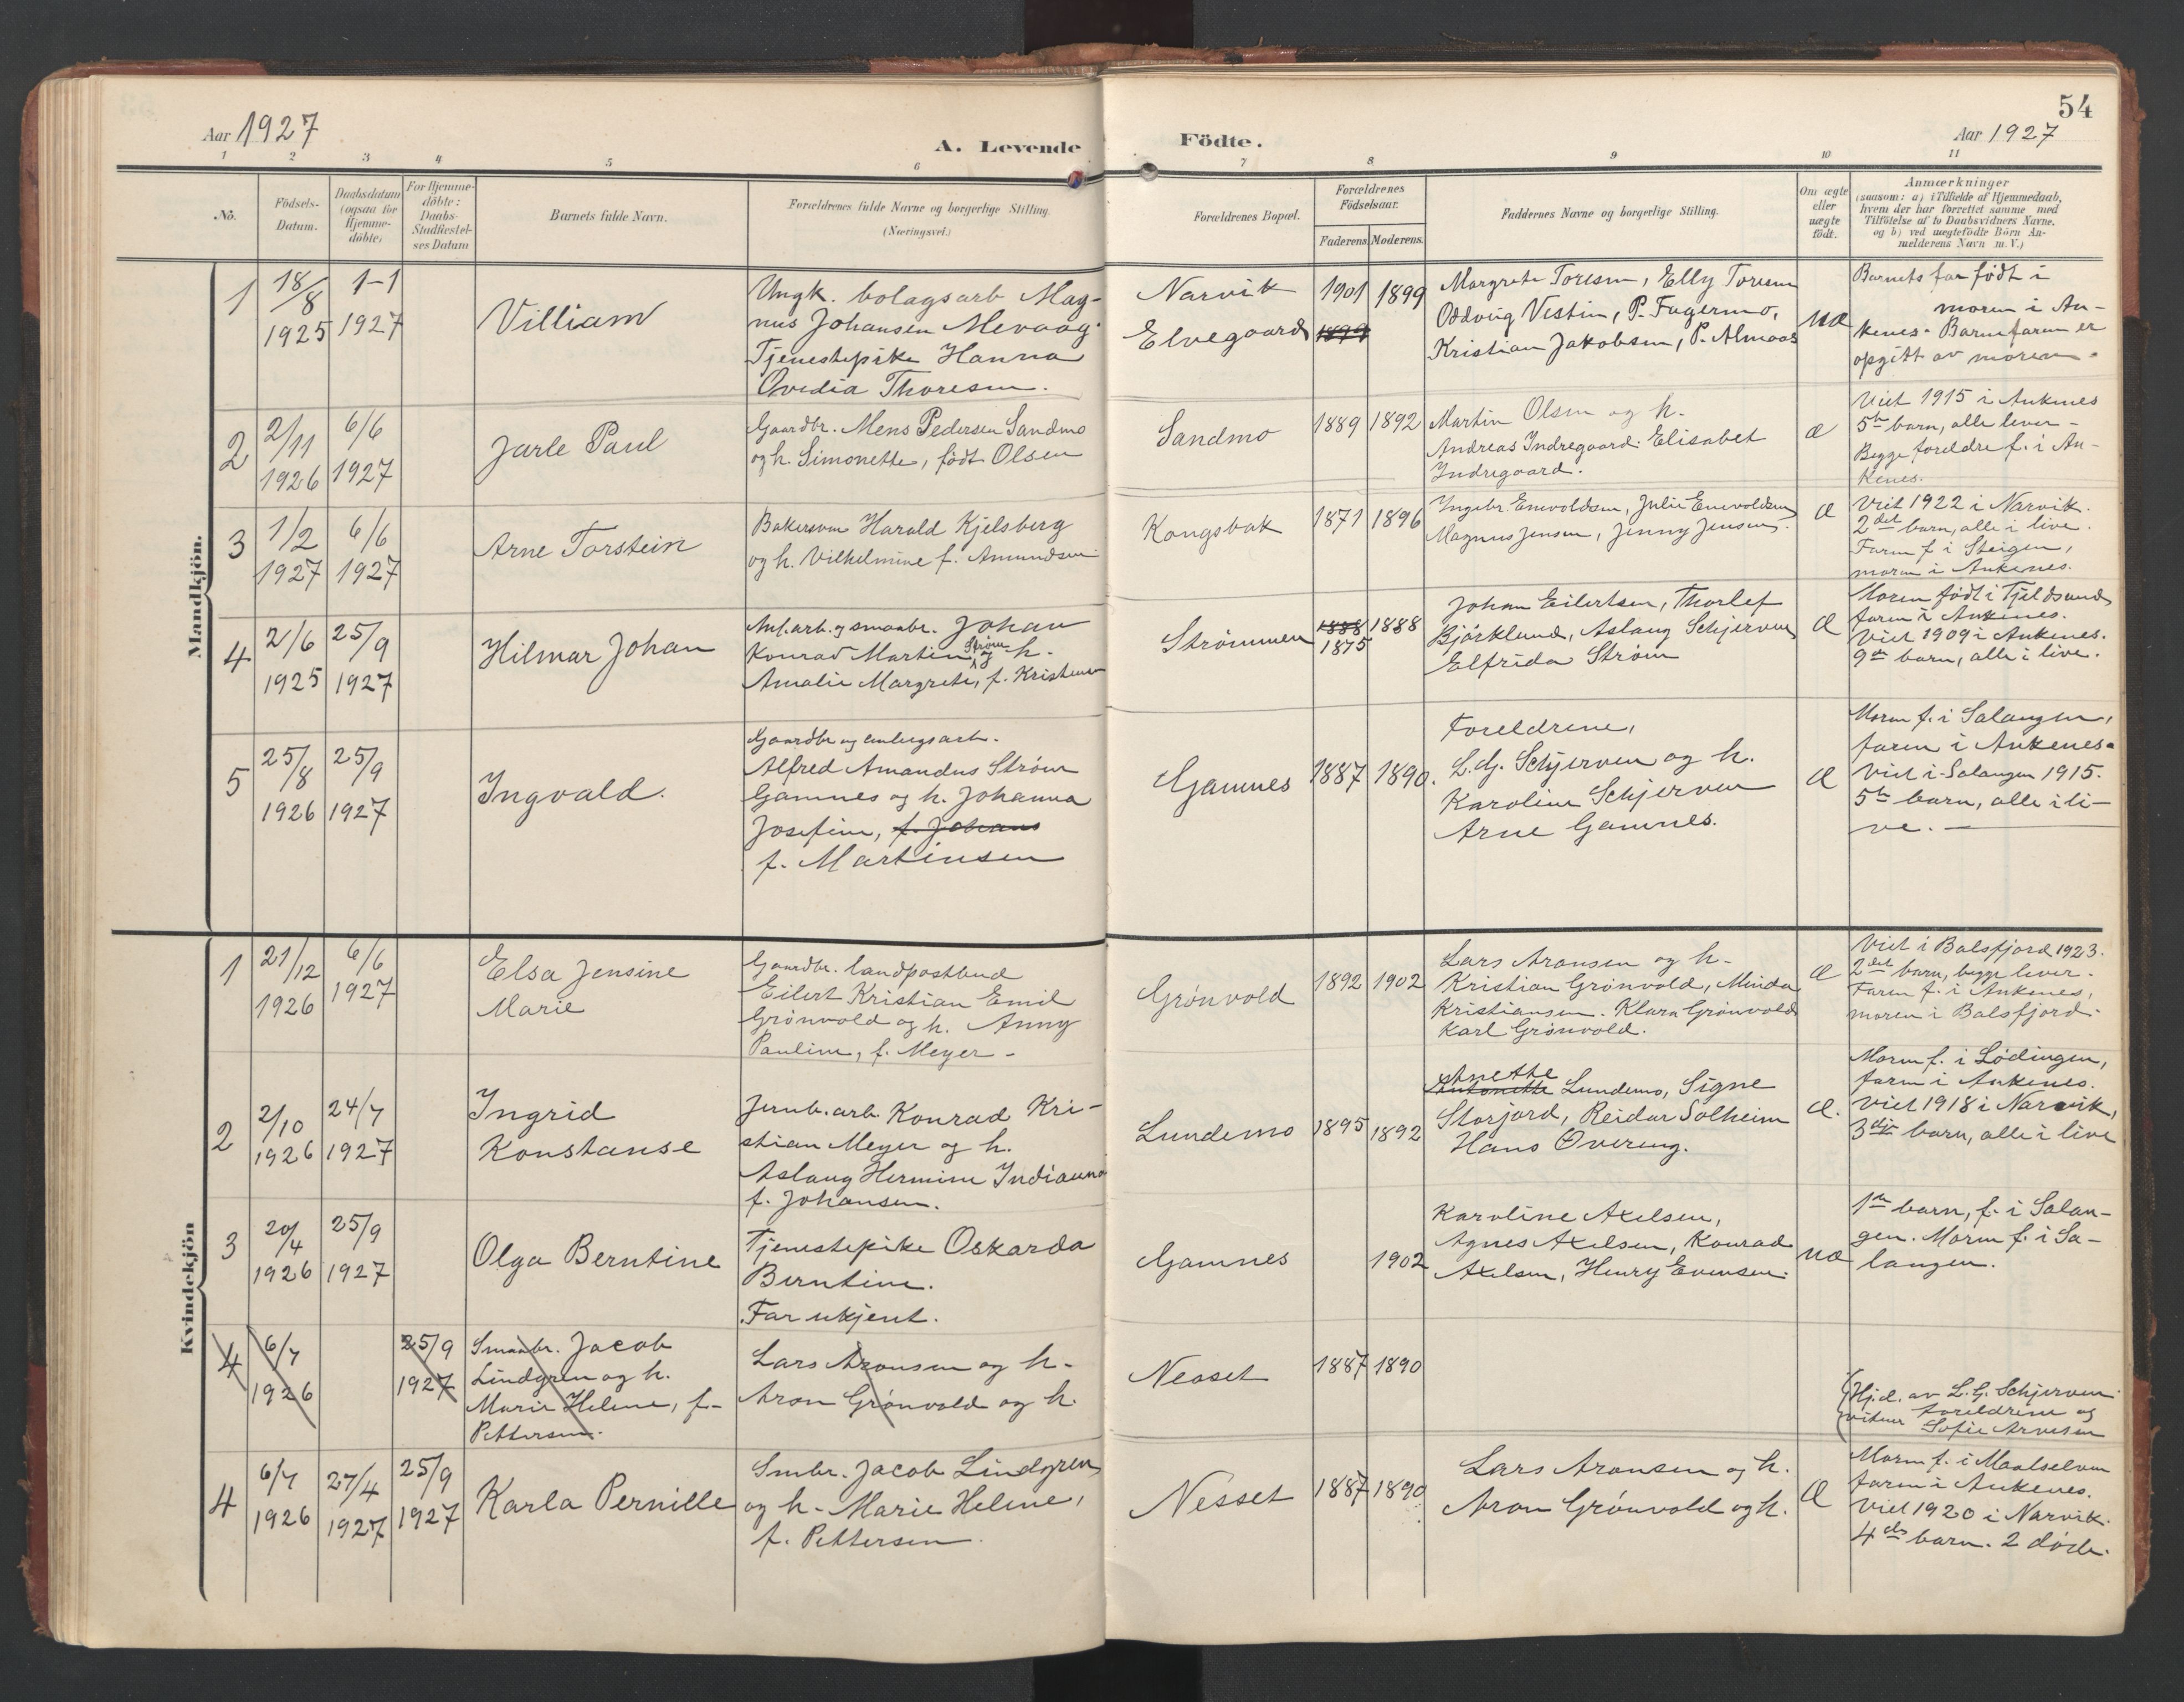 54
Aar 1927
A. Levende
Födte.
Aar 1927
1
2
3
4
5
6
7
8
9
10
11
No.
Födsels-
Datum.
Daabsdatum
(ogsaa for
Hjemme-
döbte)
For Hjemme-
döbte:
Daabs-
Stadfæstel-
ses Datum
Barnets fulde Navn.
Forældrenes fulde Navne og borgerlige Stilling.
(Næringsvei.)
Forældrenes Bopæl.
Forældrenes
Födselsaar.
Faderens.
Moderens.
Faddernes Navne og borgerlige Stilling.
Om ægte
eller
uægte
født.
Anmærkninger
(saasom: a) i Tilfælde af Hjemmedaab,
hvem der har forrettet samme med
Tilföielse af to Daabsvidners Navne,
og b) ved uægtefödte Börn An-
melderens Navn m. V.)
Mandkjön.
1
18/8
1925
1-1
1927
Villiam
Ungk. bolagsarb Mag-
nus Johansen Mevaag.
Tjenestepike Hanna
Ovedia Thoresen.
Narvik
Elvegaard
1901
1899
1899
Margrete Toresen, Elly Toresen
Oddvig Vestin, P. Fagermo,
Kristian Jakobsen, P. Almaas
uæ
Barnets far født i
moren i An-
kenes. Barnefaren er
opgitt av moren.
2
2/11
1926
6/6
1927
Jarle Paul
Gaardbr. Mens Pedersen Sandmo
og h. Simonette, født Olsen
Sandmo
1889
1892
Martin Olsen og h.
Andreas Indregaard. Elisabet
Indregaard.
æ
Viet 1915 i Ankenes
5te barn, alle lever -
Begge foreldre f. i An-
kenes.
3
1/2
1927
6/6
1927
Arne Torstein
Bakersven Harald Kjelsberg
og h. Vilhelmine f. Amundsen
Kongsbak
1871
1896
Ingebr. Enevoldsen, Julie Enevoldsen
Magnus Jensen, Jenny Jensen.
æ
Viet 1922 i Narvik.
2det barn, alle i live.
Faren f. i Steigen,
moren i Ankenes.
4
2/6
1925
25/9
1927
Hilmar Johan
Anl.arb. og smaabr. Johan
Konrad Martin Strøm og h.
Amalie Margrete, f. Kristensen
Strømmen
1888
1875
1888
Johan Eilertsen, Thorlef
Bjørklund, Aslaug Schjerven
Elfrida Strøm
æ
Moren født i Tjeldsund,
faren i Ankenes.
Viet 1909 i Ankenes.
9de barn, alle i live.
5
25/8
1926
25/9
1927
Ingvald.
Gaardbr og anlegsarb.
Alfred Amandus Strøm
Gamnes og h. Johanna
Josefine, f. Johans
f. Martinsen
Gamnes
1887
1890.
Foreldrene,
L. G. Schjerven og h.
Karoline Schjerven
Arne Gamnes.
æ
Moren f. i Salangen,
faren i Ankenes.
Viet i Salangen 1915.
5te barn, alle i li-
ve. -
Kvindekjön
1
21/12
1926
6/6
1927
Elsa Jensine
Marie
Gaardbr. landpostbud
Eilert Kristian Emil
Grønvold og h. Anny
Pauline, f. Meyer -
Grønvold
1892
1902
Lars Aronsen og h.
Kristian Grønvold, Minda
Kristiansen. Klara Grønvold
Karl Grønvold.
æ
Viet i Balsfjord 1923.
2det barn, begge lever.
Faren f. i Ankenes,
moren i Balsfjord.
2
2/10
1926
24/7
1927
Ingrid
Konstanse
Jernb.arb. Konrad Kri-
stian Meyer og h.
Aslaug Hermine Indianna
f. Johansen.
Lundemo
1895
1892
Anette
Antonette Lundemo, Signe
Storjord, Reidar Solheim
Hans Øvereng.
æ.
Moren f. i Lødingen,
faren i Ankenes.
Viet 1918 i Narvik,
3dje barn, alle i live
3
20/4
1926
25/9
1927
Olga Berntine
Tjenestepike Oskarda
Berntine.
Far ukjent.
Gamnes
1902
Karoline Axelsen,
Agnes Axelsen, Konrad
Axelsen, Henry Evensen.
uæ
1ste barn, f. i Salan-
gen. Moren f. i Sa-
langen.
4
6/7
1926
25/9
1927
Smaabr. Jacob
Lindgren og h.
Marie Helene, f.
Pettersen.
Lars Aronsen og h.
Aron Grønvold og h.
Nesset
1887
1890
(Hj.d. av L. G. Schjerven
vitner foreldrene og
Sofie Arnesen
4
6/7
1926
27/4
1927
25/9
1927
Karla Pernille
Smbr. Jacob Lindgren
og h. Marie Helene,
f. Pettersen.
Nesset
1887
1890
Lars Aronsen og h.
Aron Grønvold og h.
æ
Moren f. i Maalselven
faren i Ankenes.
Viet 1920 i Narvik.
4de barn. 2 døde.